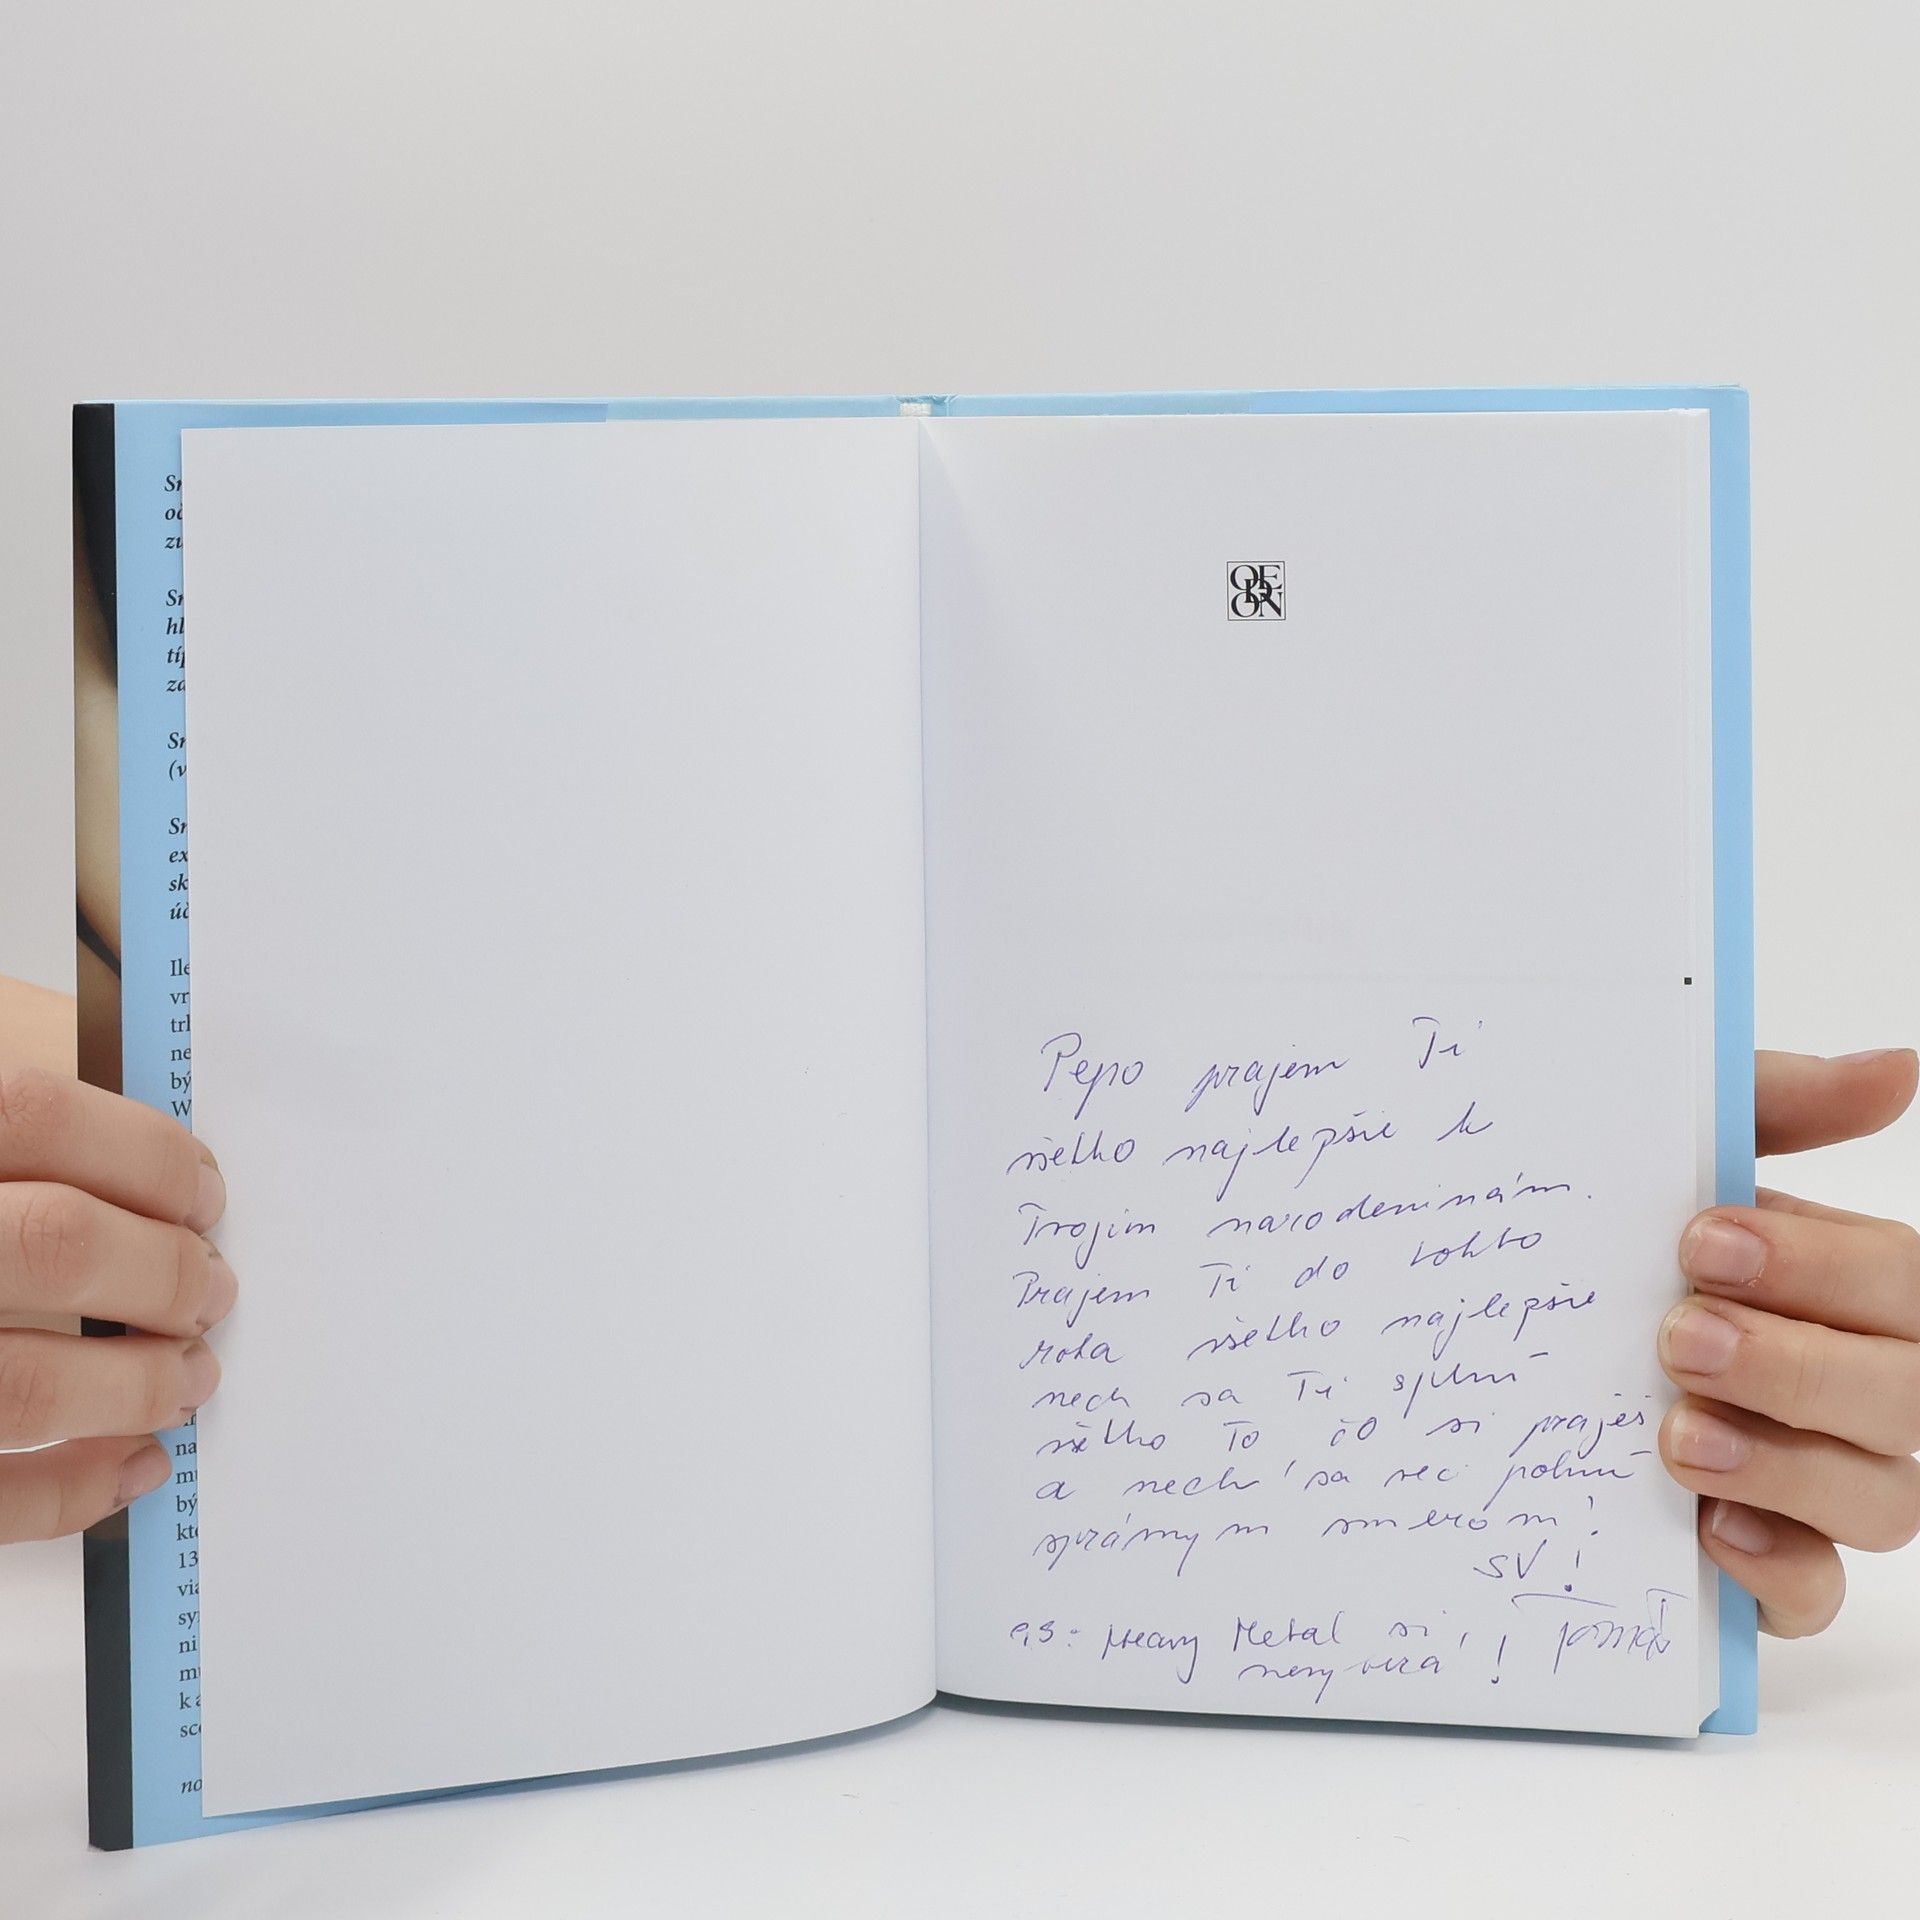 Sr
oč
zu
Sr
hl
típ
za
Sr
(v
Sr
ex
sk
úč
Ile
vr
trh
ne
bý
W
na
mu
bý
kto
13
via
syn
ni
mu
k a
sco
no
OE
D
ON
Pepo prajem Ti
všetko najlepšie k
Tvojim narodeninám.
Prajem Ti do tohto
roka všetko najlepšie
nech sa Ti splní
všetko to čo si praješ
a nech sa veci pohnú
správnym smerom!
SV!
P.S: Heavy Metal si
nevyberá! Tomáš